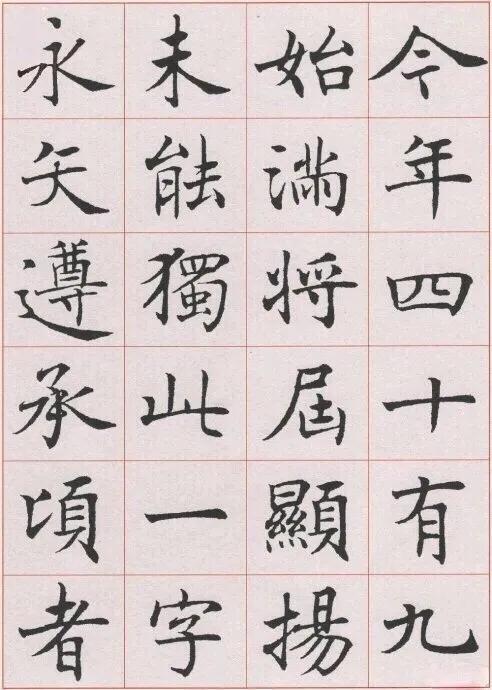 今年四十有九
始满将屆顯揚
未能獨此一字
永矢遵承頃者